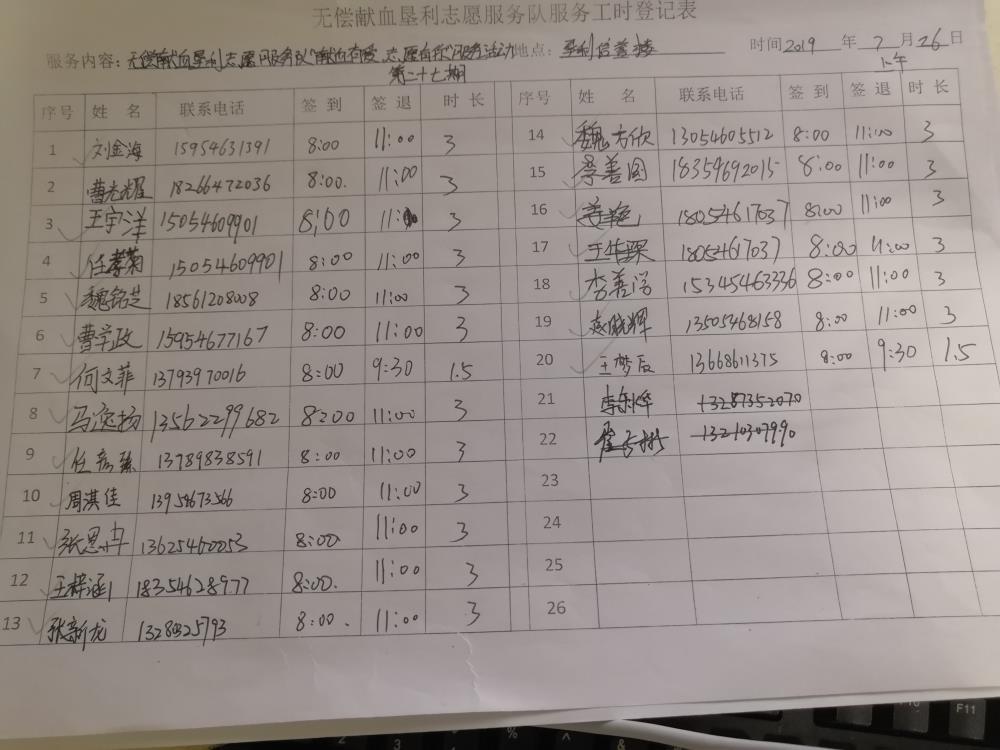 无偿献血垦利志愿服务队服务工时登记表
服务内容：无偿献血垦利志愿服务队"献血有爱、志愿有你"服务活动 地点：垦利信誉楼 时间2019年7月26日
第二十七期 上午
序号 姓 名 联系电话 签 到 签 退 时 长 序号 姓 名 联系电话 签 到 签 退 时 长
1 刘金海 15954631391 8:00 11:00 3 14 魏方欣 13054605512 8:00 11:00 3
2 曹光耀 18266472036 8:00. 11:00 3 15 景善圆 18354692015 8:00 11:00 3
3 王宇洋 15054609901 8:00 11:00 3 16 18054617037 8:00 11:00 3
4 任孝菊 15054609901 8:00 11:00 3 17 王华琛 18054617037 8:00 11:00 3
5 魏铭芝 18561208008 8:00 11:00 3 18 李善学 15345463336 8:00 11:00 3
6 曹学政 15954677167 8:00 11:00 3 19 赵晓辉 13505468158 8:00 11:00 3
7 何文菲 13793970016 8:00 9:30 1.5 20 王梦辰 13668611375 8:00 9:30 1.5
8 马逸扬 13562299682 8:00 11:00 3 21 13287352070
9 任彦臻 13789838591 8:00 11:00 3 22 13210307990
10 周淇佳 13958673566 8:00 11:00 3 23
11 张思冉 13625460053 8:00 11:00 3 24
12 王梓涵 18354628977 8:00. 11:00 3 25
13 张新龙 8:00. 11:00 3 26
F10 F11
2 3 % ^ &